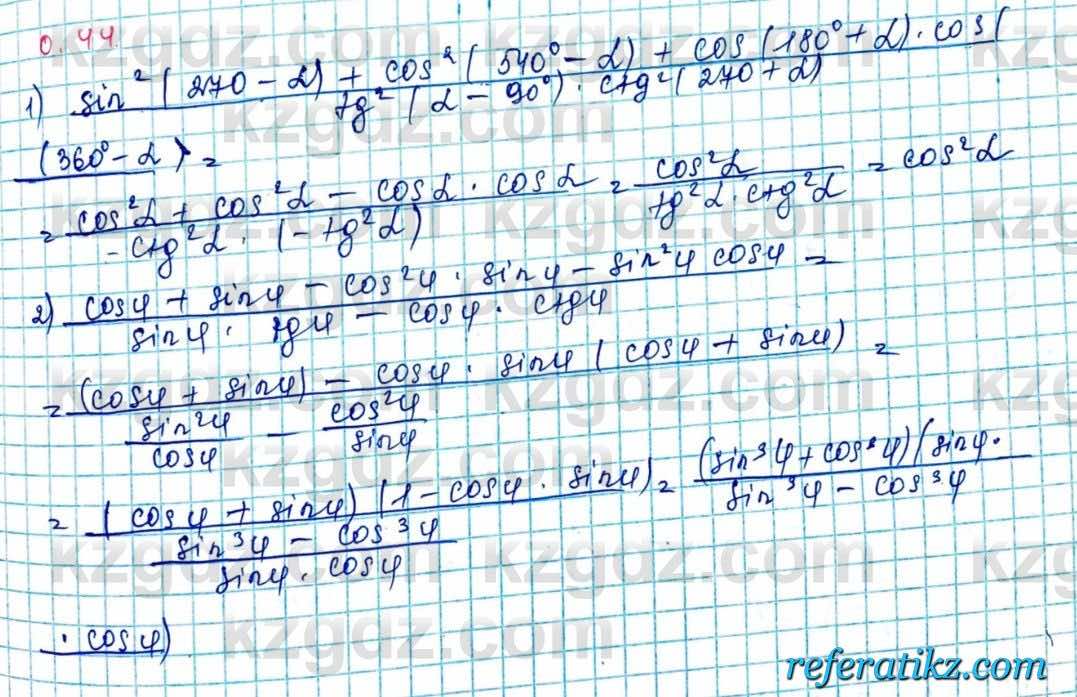 0.44
1) sin²(270 - α) + cos²(540° - α) + cos(180° + α) · cos(
tg²(α - 90°) · ctg²(270 + α)
(360° - α) =
= cos²α + cos²α - cosα · cosα / -ctg²α · (-tg²α) = cos²α / tg²α · ctg²α = cos²α
2) cosφ + sinφ - cos²φ · sinφ - sin²φ cosφ =
sinφ · tgφ - cosφ · ctgφ
= (cosφ + sinφ) - cosφ · sinφ (cosφ + sinφ) =
sin²φ / cosφ - cos²φ / sinφ
= (cosφ + sinφ)(1 - cosφ · sinφ) = (sin³φ + cos³φ)(sinφ ·
sin³φ - cos³φ / sinφ · cosφ sin³φ - cos³φ
· cosφ)
kzgdz.com
referatikz.com